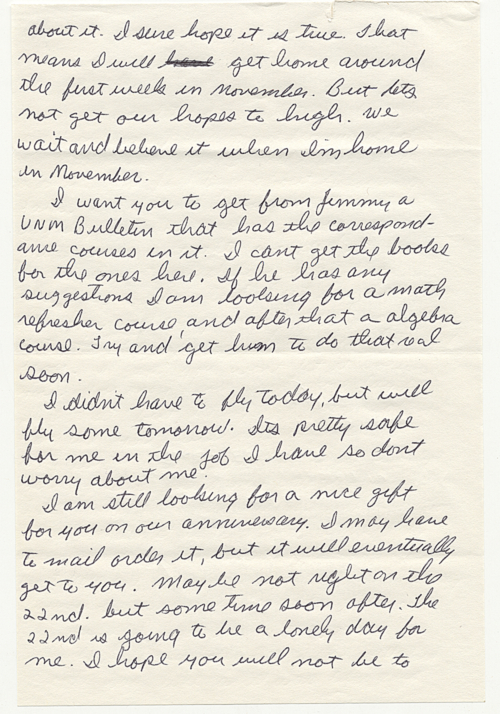 about it. I sure hope it is true. That
means I will have get home around
the first week in november. But lets
not get our hopes to high. We
wait and believe it when I'm home
in November.
I want you to get from Jimmy a
UNM Bulletin that has the correspond-
ance courses in it. I cant get the books
for the ones here. If he has any
suggestions I am looking for a math
refresher course and after that a algebra
course. Try and get him to do that real
soon.
I didn't have to fly today, but will
fly some tomorrow. Its pretty safe
for me in the job I have so dont
worry about me.
I am still looking for a nice gift
for you on our anniversary. I may have
to mail order it, but it will eventually
get to you. Maybe not right on the
22nd. but some time soon after. The
22nd is going to be a lonely day for
me. I hope you will not be to